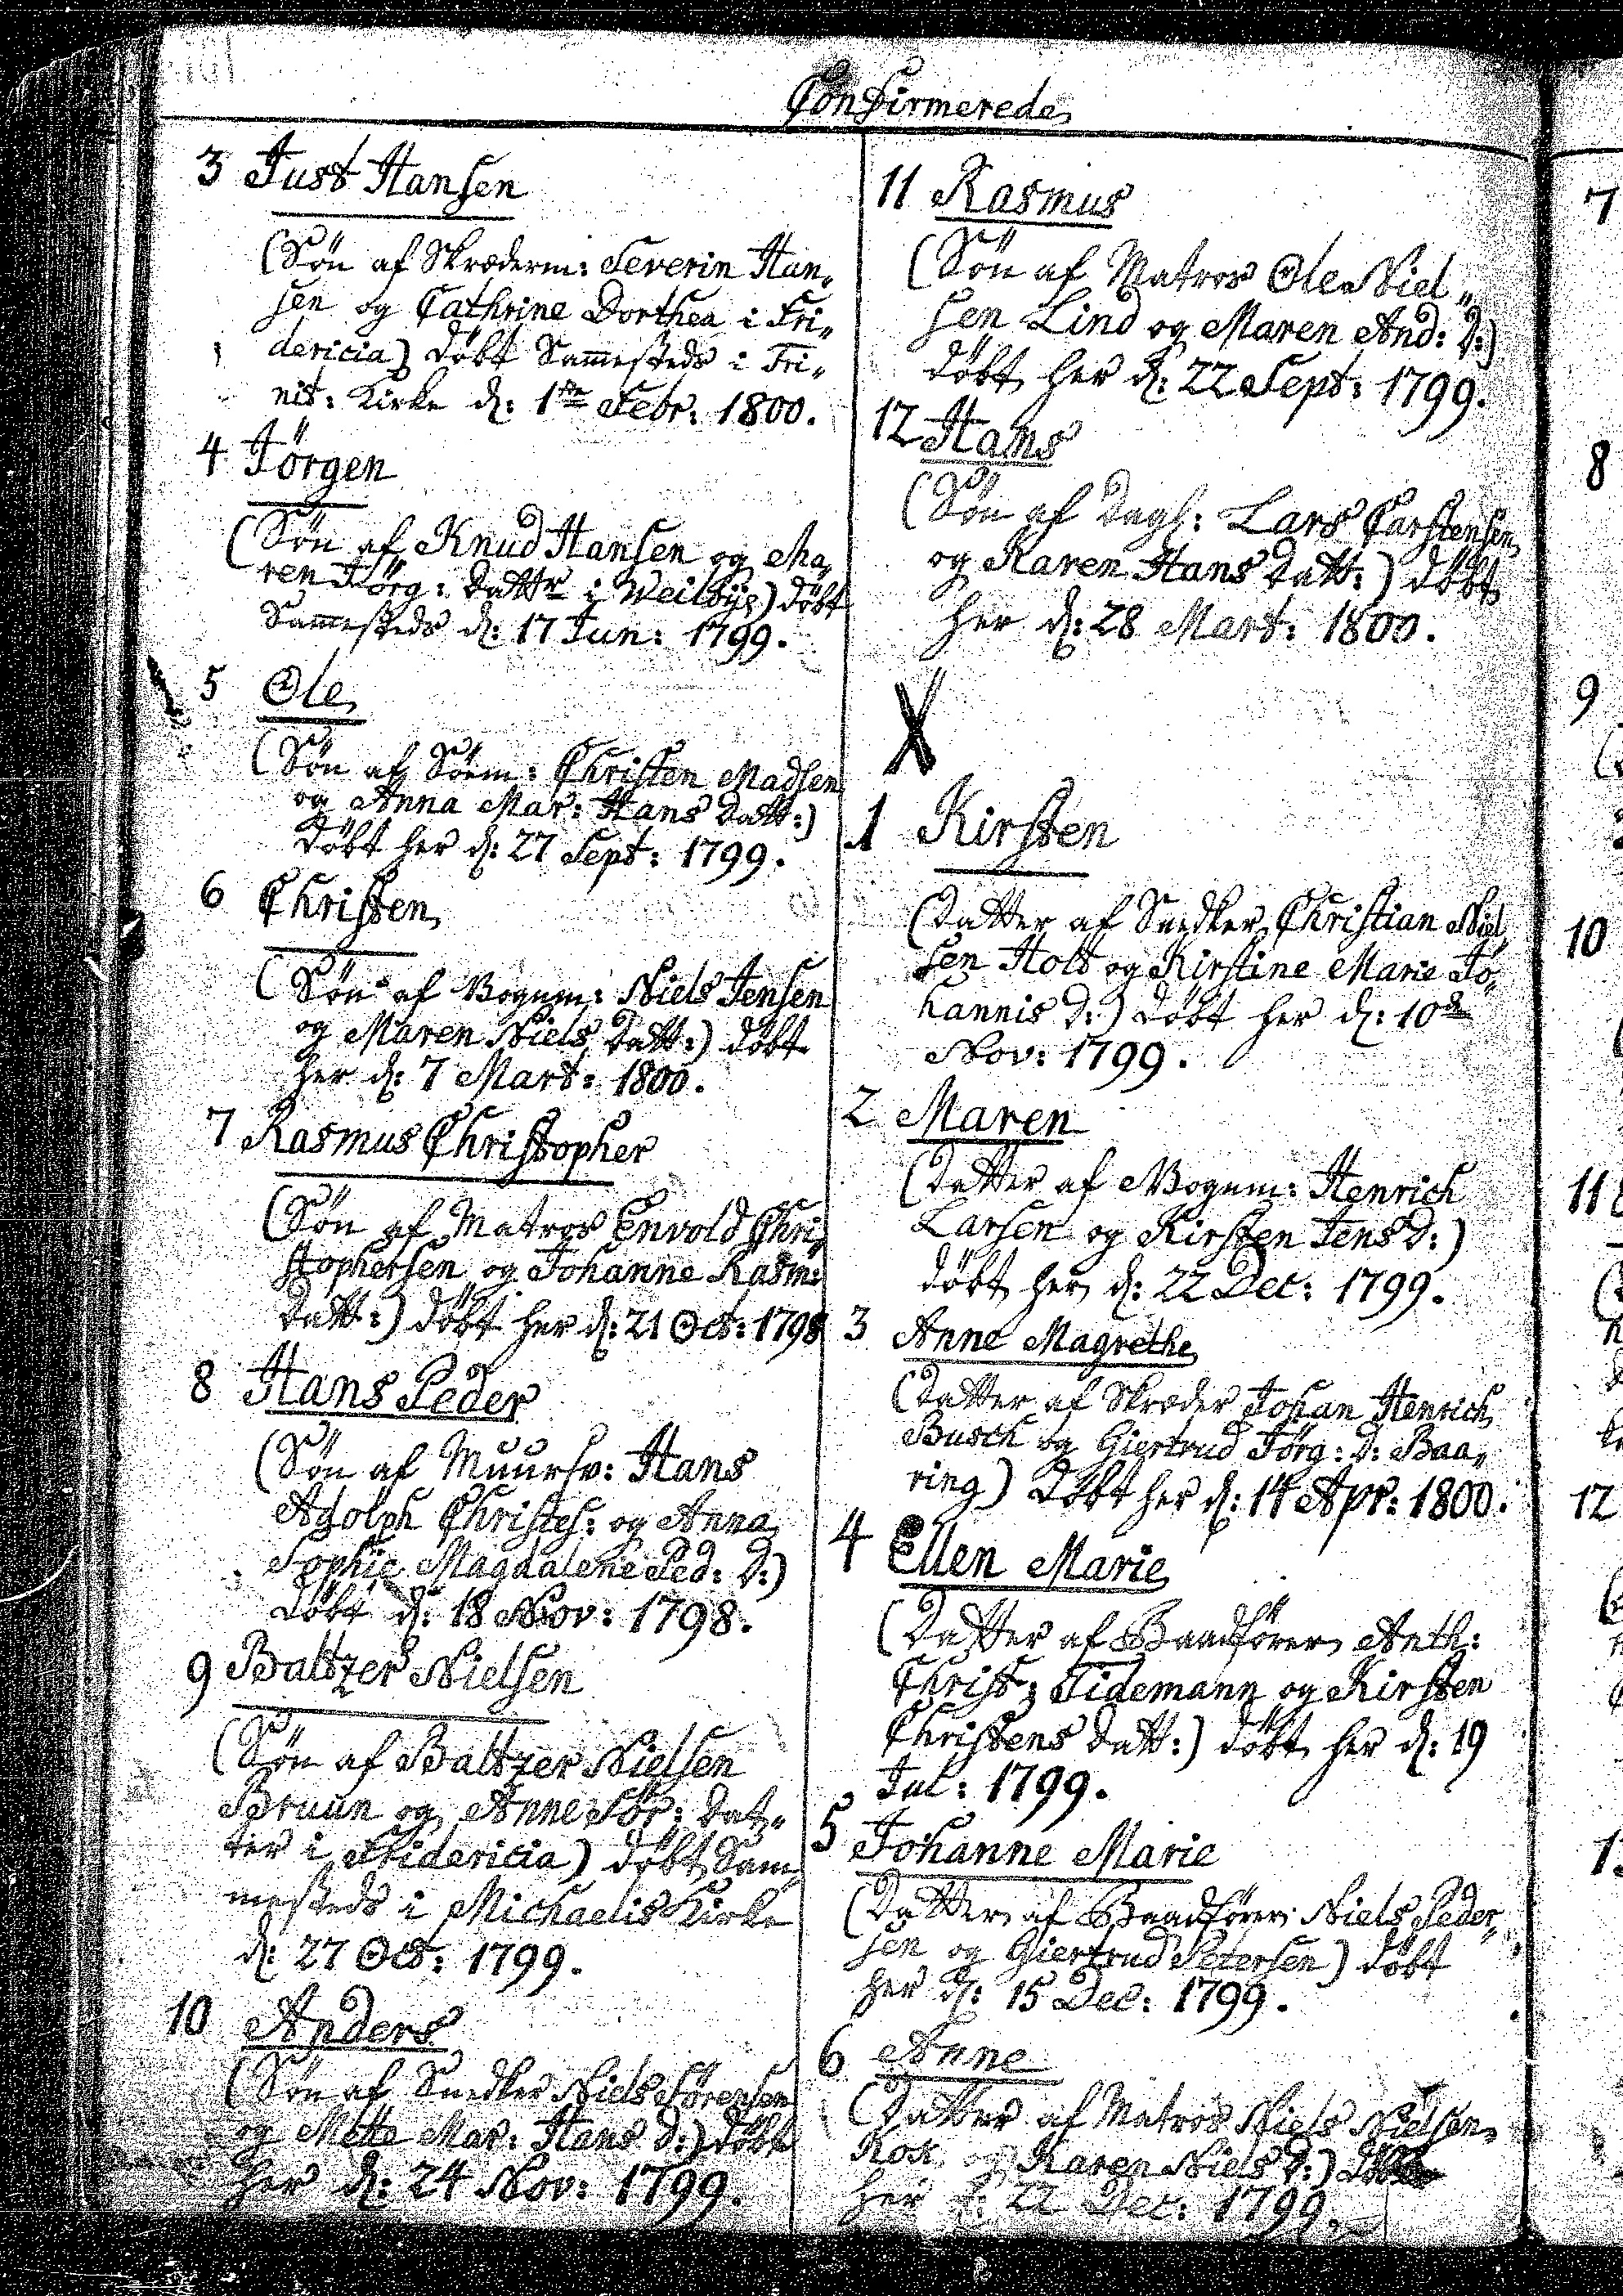 Confirmerede
3 Just Hansen
(Søn af Skræderm: Severin Han„
sen og Cathrine Dorthea i Fri„
dericia) døbt Sammesteds i Tri„
nit: Kirke d: 1ste Febr: 1800.
4 Jörgen
(Søn af Knud Hansen og Ma„
ren Jörg: Dattr i Weilbÿe) døbt
Sammesteds d: 17 Jun: 1799.
5 Ole
(Søn af Söem: Christen Madsen
og Anna Mar: Hans Datt:)
døbt her d: 27 Sept: 1799.
6 Christen
(Søn af Vognm: Niels Jensen
og Maren Niels Datt:) døbt
her d: 7 Mart: 1800.
7 Rasmus Christopher
(Søn af Matros Envold Chri„
stophersen og Johanne Rasm:
Datt:) døbt her d: 21 Oct: 1798
8 Hans Peder
(Søn af Muursv: Hans
Adolph Christes: og Anna
Sophie Magdalene Ped: D:)
døbt d: 18 Nov: 1798.
9 Baltzer Nielsen
(Søn af Baltzer Nielsen
Bruun og Anne Sör: Dat„
ter i Fridericia) døbt Sam„
mesteds i Michaelis Kirke
d: 27 Oct: 1799.
10 Anders
(Søn af Snedker Niels Sörensen
og Mette Mar: Hans D:) døbt
her d: 24 Nov: 1799.
11 Rasmus
(Søn af Matros Ole Niel„
sen Lind og Maren And: D:)
døbt her d: 22 Sept: 1799.
12 Hans
(Søn af Dagl: Lars Carstensen
og Karen Hans Datt:) døbt
her d: 28 Mart: 1800.
1 Kirsten
(Datter af Snedker Christian Niel„
sen Holt og Kirstine Marie Jo„
hannis D:) døbt her d: 10de
Nov: 1799.
2 Maren
(Datter af Vognm: Henrich
Larsen og Kirsten Jens D:)
døbt her d: 22 Dec: 1799.
3 Anne Magrethe
(Datter af Skræder Johan Henrich
Busch og Giertrud Jörg: D: Baa„
ring) døbt her d: 14 Apr: 1800.
4 Ellen Marie
(Datter af Baadförer Anth:
Christ: Tidemann og Kirsten
Christens Datt:) døbt her d: 19
Jul: 1799.
5 Johanne Marie
(Datter af Baadförer Niels Peder„
sen og Giertrud Petersen) døbt
her d: 15 Dec: 1799.
6 Anne
(Datter af Matros Niels Nielsen
Kok og Karen Niels D:) døbt
her d: 22 Dec: 1799.
7
8
9
10
11
12